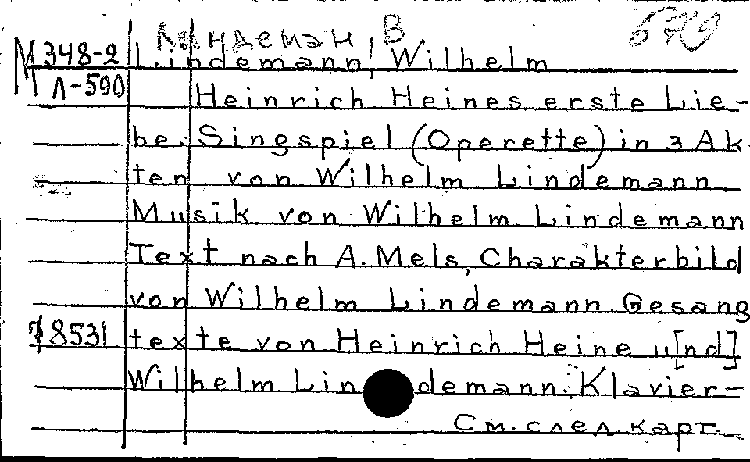 Линдеман, В
М 348-2 Lindemann, Wilhelm
Л-590 Heinrich Heines erste Lie-
be. Singspiel (Operette) in 3 Ak
ten von Wilhelm Lindemann
Musik von Wilhelm Lindemann
Text nach A. Mels, Charakterbild
von Wilhelm Lindemann Gesang
texte von Heinrich Heine u[nd]
Wilhelm Lindemann. Klavier-
См. след. карт.